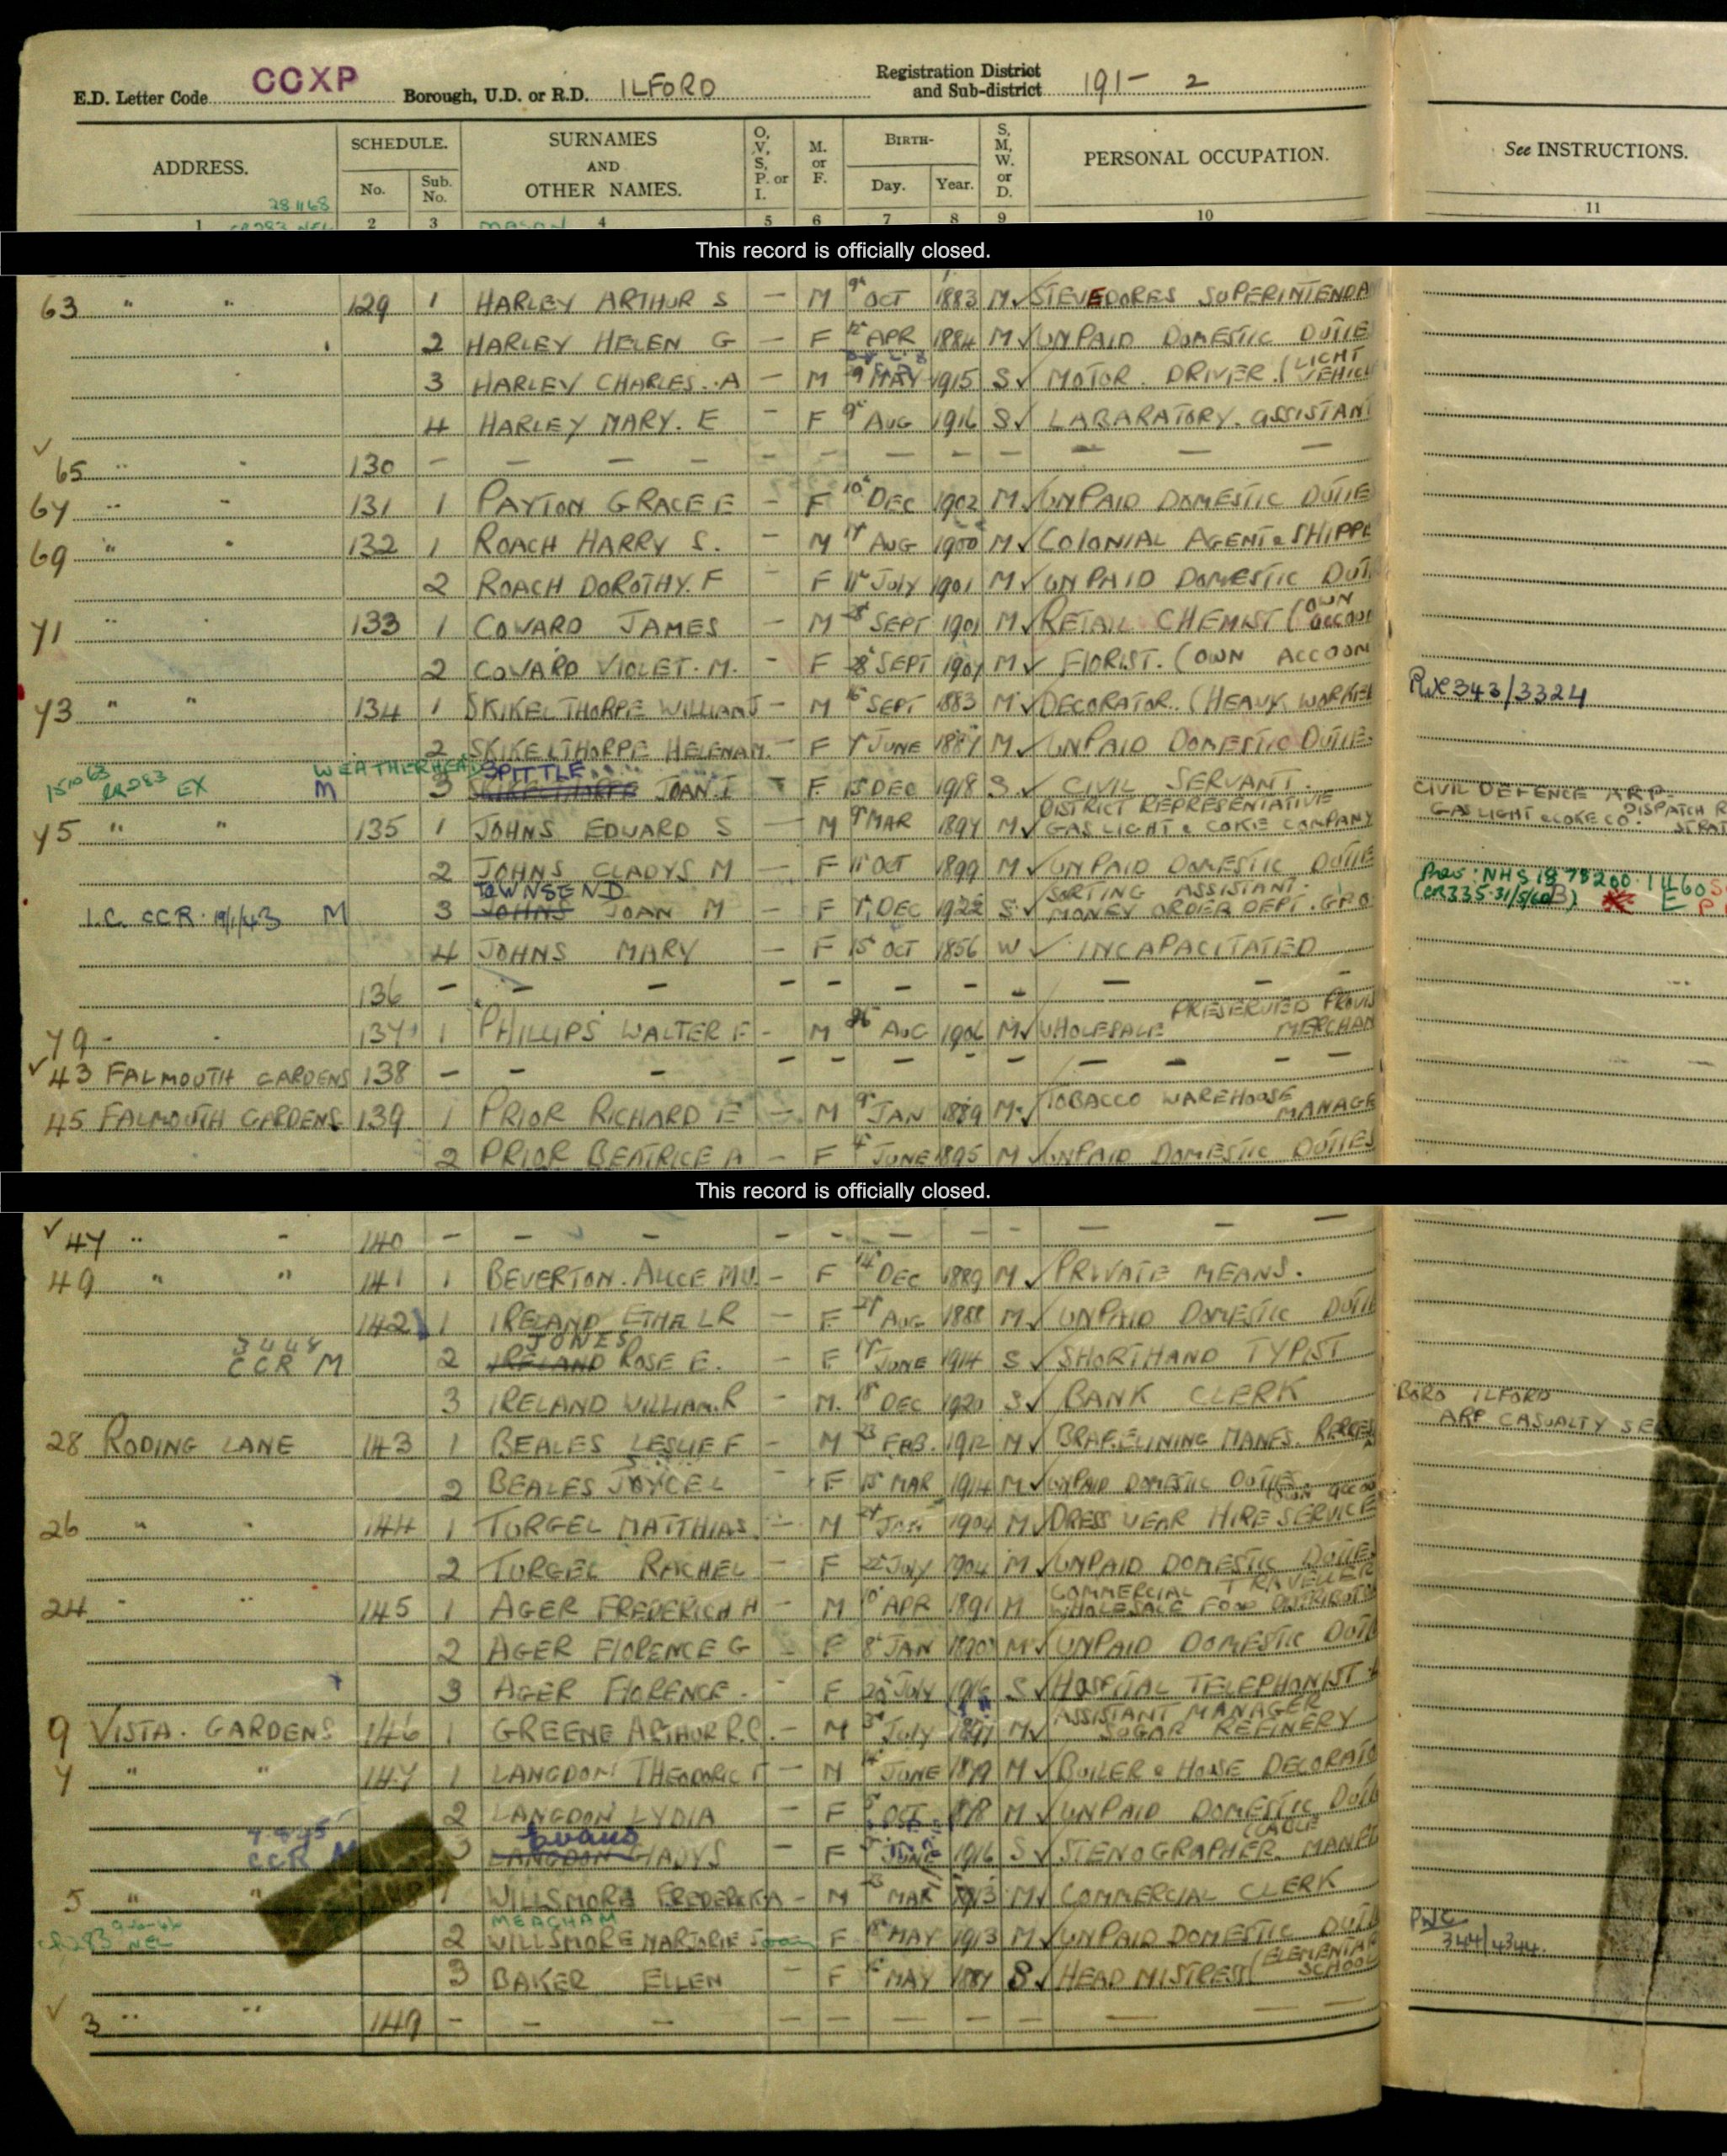 E.D. Letter Code CCXP Borough, U.D. or R.D. ILFORD Registration District and Sub-district 191- 2
ADDRESS. SCHEDULE. No. Sub. No. SURNAMES AND OTHER NAMES. O, V, S, P. or I. M. or F. BIRTH- Day. Year. S, M, W. or D. PERSONAL OCCUPATION. See INSTRUCTIONS.
28 11 68
1 2 3 4 5 6 7 8 9 10 11
CR283 NEL MASON
This record is officially closed.
63 " " 129 1 HARLEY ARTHUR S - M 9th OCT 1883 M ✓ STEVEDORES SUPERINTENDA
2 HARLEY HELEN G - F 12th APR 1884 M ✓ UNPAID DOMESTIC DUTIE
3 HARLEY CHARLES. A - M 9 MAY 1915 S ✓ MOTOR. DRIVER. (LIGHT VEHICL
4 HARLEY MARY. E - F 9th AUG 1916 S ✓ LABARATORY. ASSISTAN
✓ 65 " " 130 - - - - - - - - - - -
67 " " 131 1 PAYTON GRACE E - F 10th DEC 1902 M ✓ UNPAID DOMESTIC DUTIE
69 " " 132 1 ROACH HARRY S. - M AUG 1900 M ✓ COLONIAL AGENT & SHIPPE
2 ROACH DOROTHY. F - F 11th JULY 1901 M ✓ UNPAID DOMESTIC DUTI
71 " 133 1 COWARD JAMES - M SEPT 1901 M ✓ RETAIL CHEMIST (OWN ACCOUN
2 COWARD VIOLET. M. - F 8 SEPT 1907 M ✓ FLORIST. (OWN ACCOUN
73 " " 134 1 SKIKELTHORPE WILLIAM J - M 16th SEPT 1883 M ✓ DECORATOR. (HEAVY WORKER RWR343/3324
2 SKIKELTHORPE HELENA M. - F 7th JUNE 1887 M ✓ UNPAID DOMESTIC DUTIE.
15 10 63 CR283 EX M WEATHERHEAD SPITTLE
3 SKIKELTHORPE JOAN. I - F 15 DEC 1918 S ✓ CIVIL SERVANT.
75 " " 135 1 JOHNS EDWARD S - M 9th MAR 1897 M ✓ DISTRICT REPRESENTATIVE GAS LIGHT & COKE COMPANY CIVIL DEFENCE ARP- GAS LIGHT & COKE CO. DISPATCH R STRAT
2 JOHNS GLADYS M - F 11th OCT 1899 M ✓ UNPAID DOMESTIC DUTIE
TOWNSEND
I.C. CCR. 19/1/43 M 3 JOHNS JOAN M - F 7th DEC 1922 S ✓ SORTING ASSISTANT. MONEY ORDER DEPT. GPO (CR335.31/5/60B) E
4 JOHNS MARY - F 15th OCT 1856 W ✓ INCAPACITATED
136 - - - - - - - - - -
79 " 137 1 PHILLIPS WALTER F - M 26 AUG 1906 M ✓ WHOLESALE PRESERVED PROVIS MERCHAN
✓ 43 FALMOUTH GARDENS 138 - - - - - - - - - -
45 FALMOUTH GARDENS 139 1 PRIOR RICHARD E - M 9th JAN 1889 M ✓ TOBACCO WAREHOUSE MANAGE
2 PRIOR BEATRICE A - F 4th JUNE 1895 M ✓ UNPAID DOMESTIC DUTIES
This record is officially closed.
✓ 47 " - 140 - - - - - - - - - -
49 " " 141 1 BEVERTON. ALICE M.U. - F 14th DEC 1889 M ✓ PRIVATE MEANS.
142 1 IRELAND ETHEL R - F AUG 1888 M ✓ UNPAID DOMESTIC DUTIE
3 4 48 JONES
CCR M 2 IRELAND ROSE E. - F JUNE 1914 S ✓ SHORTHAND TYPIST
3 IRELAND WILLIAM. R - M. 18th DEC 1920 S ✓ BANK CLERK BORO ILFORD ARP CASUALTY SERVICES
28 RODING LANE 143 1 BEALES LESLIE F - M 23 FEB. 1912 M ✓ BRAKELINING MANFS. REPRES
2 BEALES JOYCE L - F 15th MAR 1914 M ✓ UNPAID DOMESTIC DUTIES
26 " " 144 1 TURGEL MATTHIAS - M JAN 1904 M ✓ DRESS WEAR HIRE SERVICE
2 TURGEL RACHEL - F 22 JULY 1904 M ✓ UNPAID DOMESTIC DUTIE
24 " " 145 1 AGER FREDERICH H - M 10th APR 1891 M COMMERCIAL TRAVELLER WHOLESALE FOOD DISTRIBUTO
2 AGER FLORENCE G - F 8th JAN 1890 M ✓ UNPAID DOMESTIC DUTIE
3 AGER FLORENCE. - F 20th JULY 1916 S ✓ HOSPITAL TELEPHONIST
9 VISTA. GARDENS 146 1 GREENE ARTHUR R.C. - M 3rd JULY 1897 M ✓ ASSISTANT MANAGER SUGAR REFINERY
7 " " 147 1 LANGDON THEODORIC F - M JUNE 1879 M ✓ BUILER & HOUSE DECORATO
2 LANGDON LYDIA - F OCT 1878 M ✓ UNPAID DOMESTIC DUTIE
7.8.45 Evans
CCR M 3 LANGDON GLADYS - F JUNE 1916 S ✓ STENOGRAPHER. CABLE MANFR
5 " " 1 WILLSMORE FREDERICK A - M MAR 1913 M ✓ COMMERCIAL CLERK
MEACHAM
CR283 NEL 2 WILLSMORE MARJORIE Joan F 18th MAY 1913 M ✓ UNPAID DOMESTIC DUTIE PNC 344/4344.
3 BAKER ELLEN - F MAY 1887 S ✓ HEAD MISTRESS (ELEMENTAR SCHOOL
✓ 3 " " 149 - - - - - - - - - -